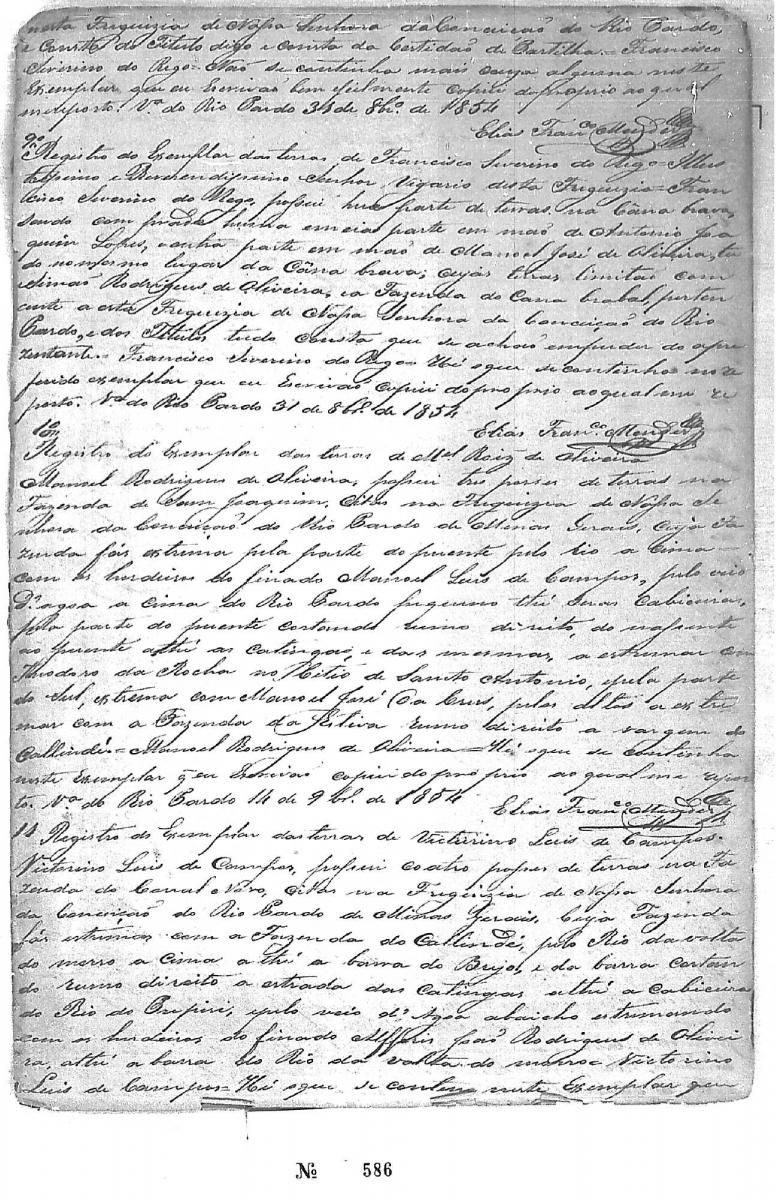 nesta Freguizia de Nossa Senhora da Conceicaõ do Rio Pardo,
e Consta do Titulo digo e consta da Certidaõ de Partilha = Francisco
Siverino do Rego = Naõ se continha mais couza alguma neste
Exemplar que eu Escrivaõ bem efielmente copiei do proprio ao qual
me reporto. Vª do Rio Pardo 31 de 8brº de 1854
Elias Francº Mendes
9º
Registro do Exemplar das terras de Francisco Siverino do Rego = Illus
trissimo e Reverendissimo Senhor Vigario desta Freguizia = Fran
cisco Siverino do Rego, possui huma parte de terras na Cãna brava,
com huma parte em maõ de Antonio Joa
quim Lopes, parte em maõ de Manoel José de Oliveira,
do no mesmo lugar da Cãna brava, cujas terras limitaõ com
Simaõ Rodrigues de Oliveira, e a Fazenda do Cana brabal, perten
cente a esta Freguizia de Nossa Senhora da Conceiçaõ do Rio
Pardo, e dos Titulos tudo consta que se achaõ em puder do apre
zentante = Francisco Severino do Rego = Hé oque se continha no re
ferido exemplar que eu Escrivaõ copiei do proprio ao qual me re
porto. Vª do Rio Pardo 31 de 8brº de 1854
Elias Francº Mendes
10
Registro do Exemplar das terras de Mel Roiz de Oliveira
Manoel Rodrigues de Oliveira, possui tres posses de terras na
Fazenda de Sam Joaquim, citas na Freguizia de Nossa Se
nhora da Conceicaõ do Rio Pardo de Minas Gerais, Cuja Fa
zenda fás extrema pela parte do puente pelo rio a Cima
com os herdeiros do finado Manoel Luis de Campos, pelo veio
D'agoa a cima do Rio Pardo piqueno thé suas Cabiceiras,
pela parte do puente cortando rumo direito, do nassente
ao puente athé as catingas, e das mesmas, a extremar com
Theodoro da Rocha no Citio de Sancto Antonio, epela parte
do Sul, extrema com Manoel José da Crus, pelos altos a extre
mar com a Fazenda da rumo direito a vargem do
Callindé = Manoel Rodrigues de Oliveira = Hé oque se continha
neste Exemplar q eu Escrivaõ copiei do proprio ao qual me repor
to. Vª do Rio Pardo 14 de 9brº de 1854
Elias Francº Mendes
11 Registro do Exemplar das terras de Victurino Luis de Campos
Victorino Luis de Campos, possui coatro posses de terras na Fa
zenda do Curral Novo, citas na Freguizia de Nossa Senhora
da Conceicaõ do Rio Pardo de Minas Gerais, Cuja Fazenda
fás extrema com a Fazenda do Callindé, pelo Rio da volta
do morro a Cima athé a barra do Brejo, e da barra cortan
do rumo direito a estrada das Catingas, athé a cabiceira
do Rio do, epelo veio d'Agoa abaicho extremando
com os herdeiros do finado Alferes Joaõ Rodrigues de Olivei
ra, athé a barra do Rio da volta do morro = Victorino
Luis de Campos = Hé oque se continha neste Exemplar que
Nº 586